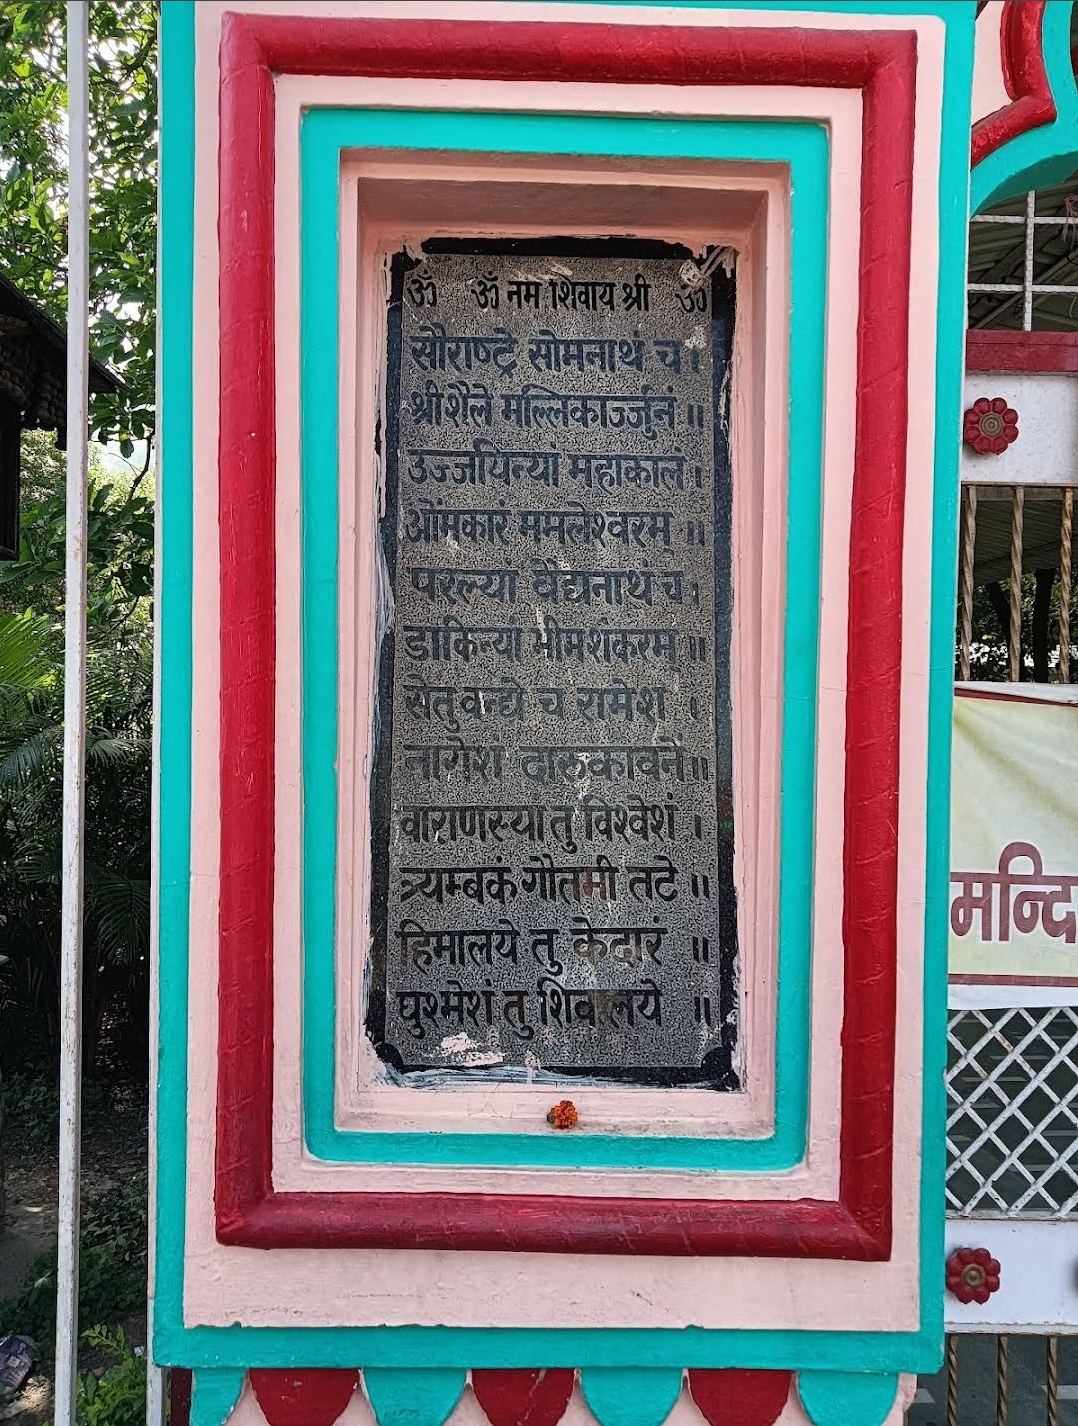 ॐ ॐ नम शिवाय श्री ॐ
सौराष्ट्रे सोमनाथं च।
श्रीशैले मल्लिकार्ज्जुनं ॥
उज्जयिन्यां महाकालं।
ओंमकारं ममलेश्वरम् ॥
परल्यां वैद्यनाथं च।
डाकिन्यां भीमशंकरम् ॥
सेतुवन्धे च रामेश ।
नागेशं दारुकावने॥
वाराणस्यां तु विश्वेशं ।
त्र्यम्बकं गौतमी तटे ॥
हिमालये तु केदारं ॥
घुश्मेशं तु शिवालये ॥
मन्दि